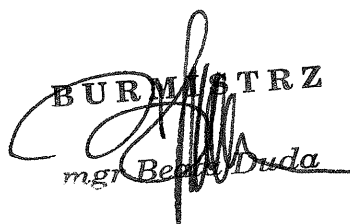 BURMISTRZ
mgr Beata Duda